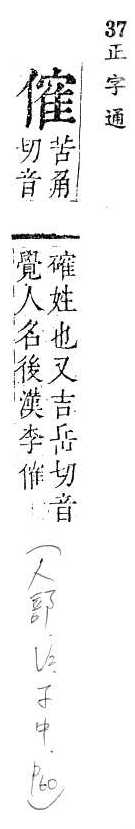 37正字通
傕
苦角
切音
確姓也又吉岳切音
覺人名後漢李傕
(人部. 子中. P60)